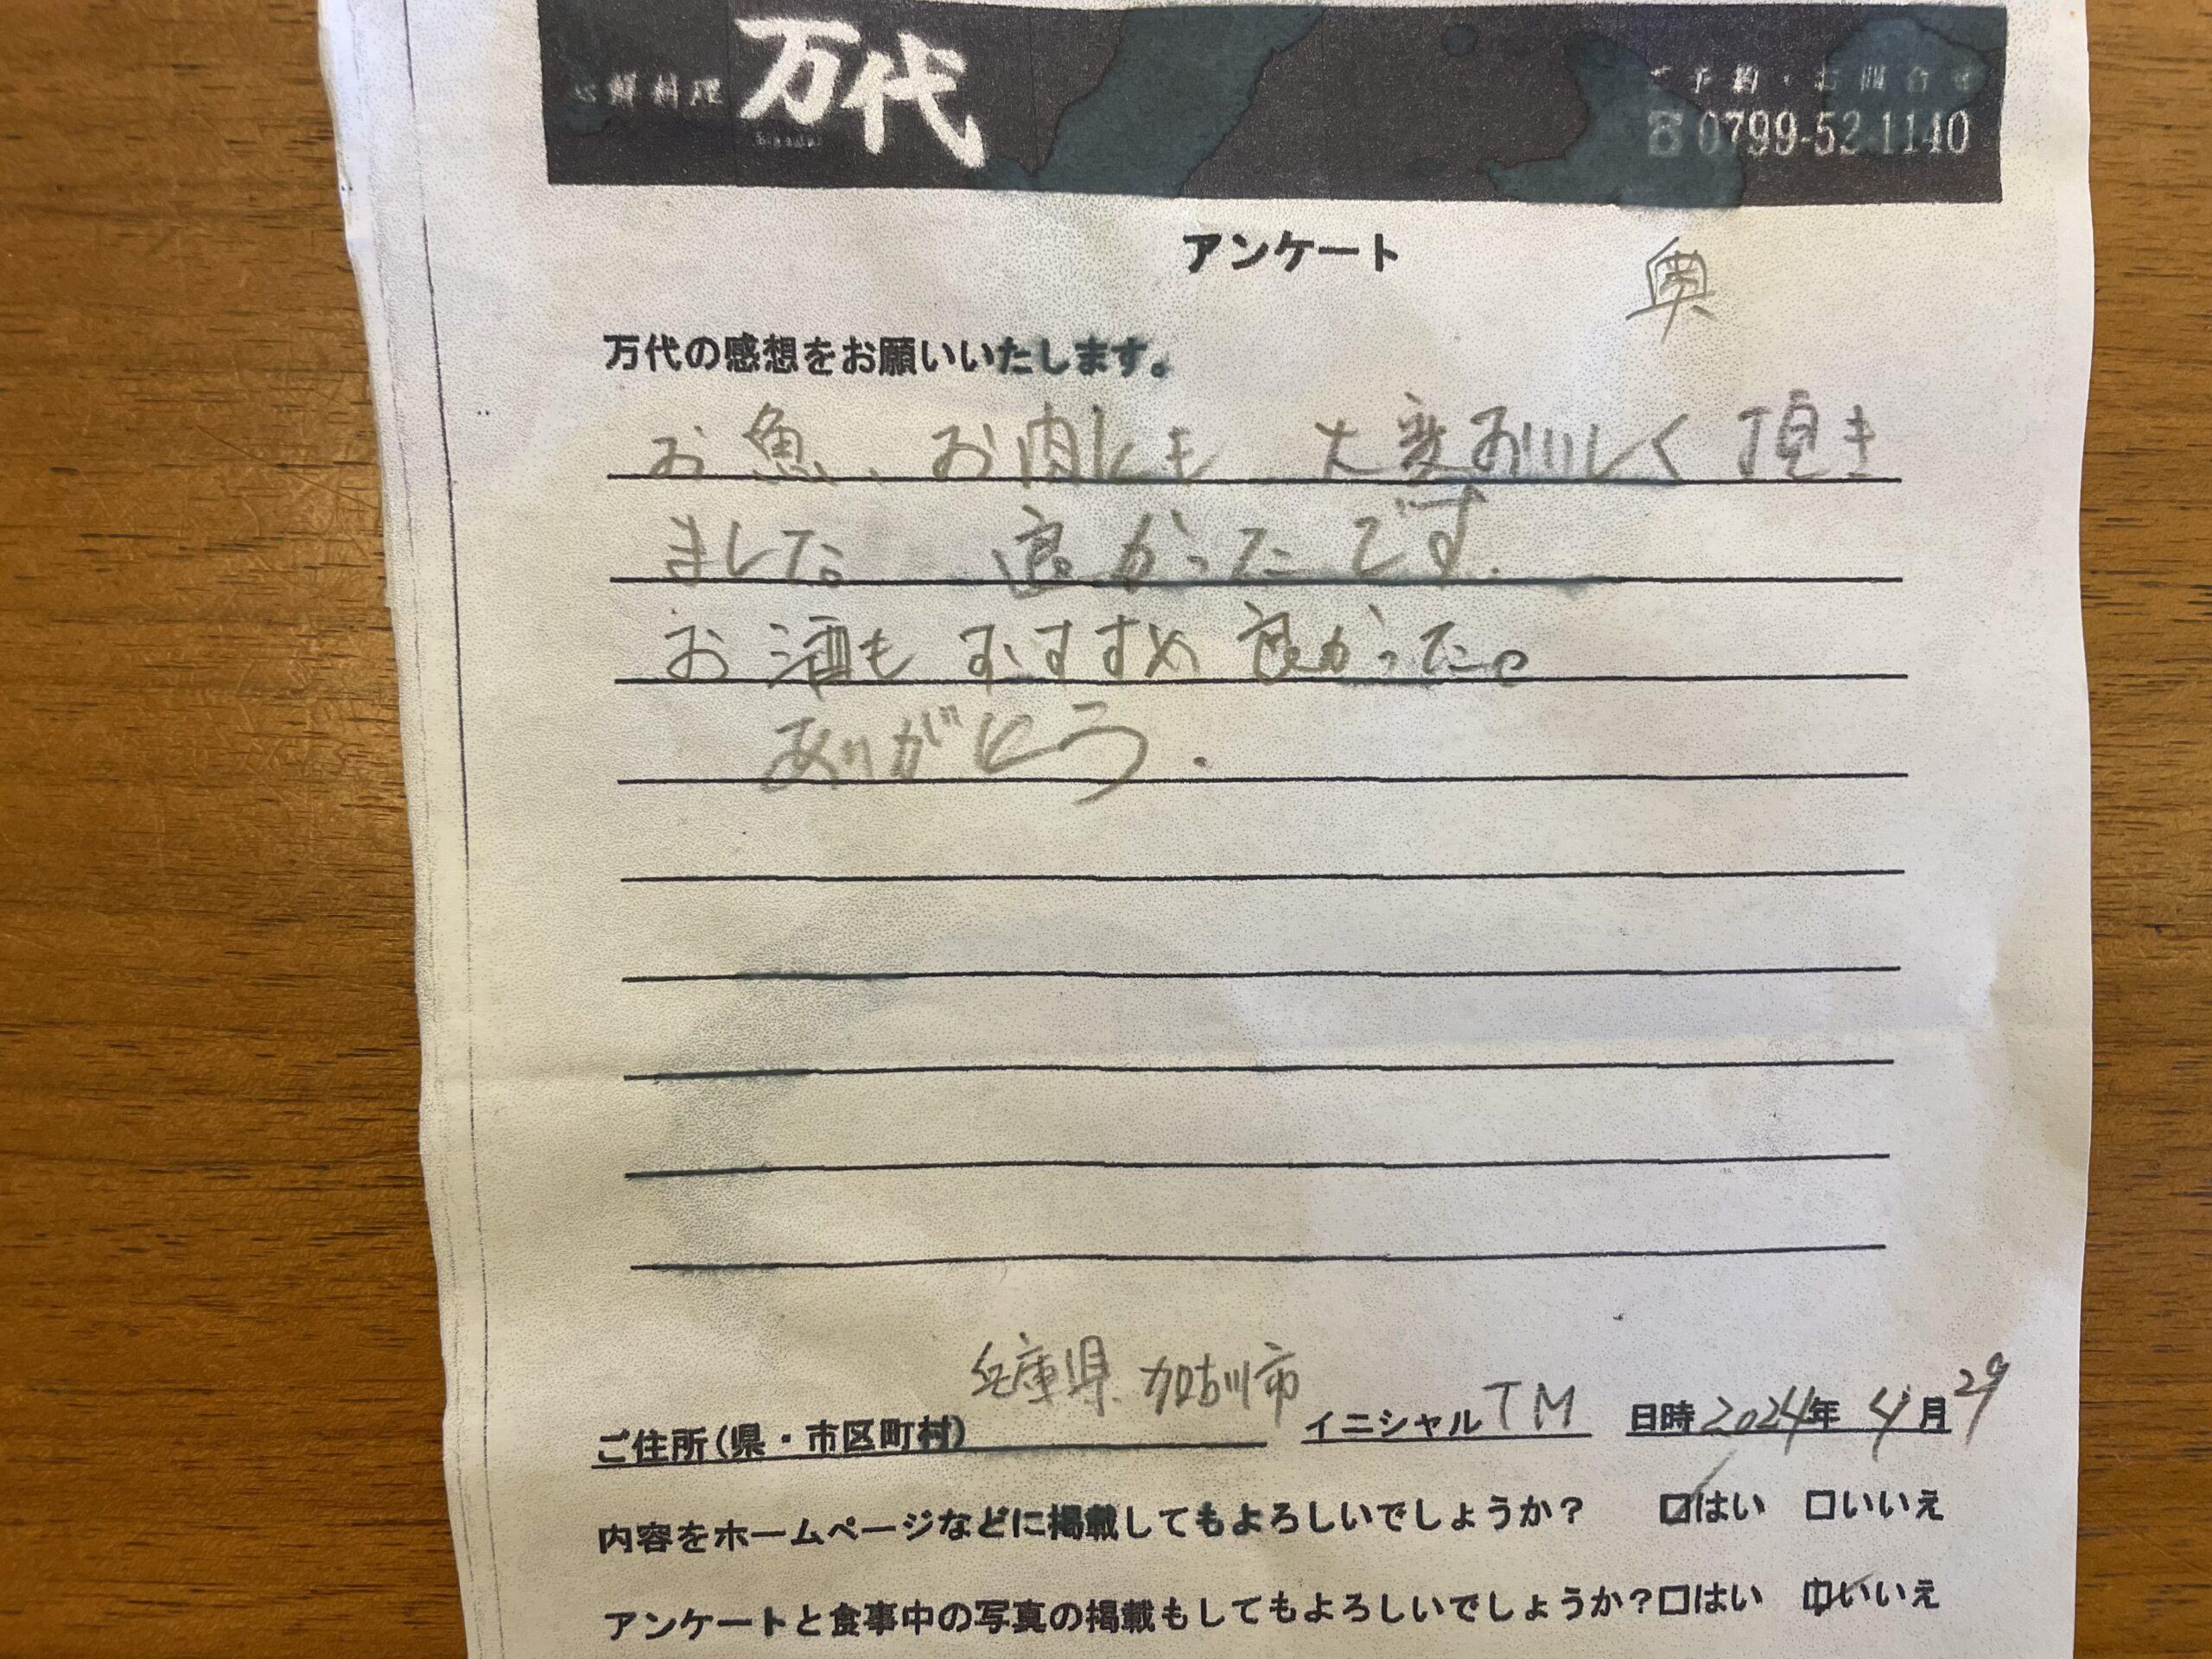 心鮮料理 万代
ご予約・お問合せ
☎0799-52-1140
アンケート
奥
万代の感想をお願いいたします。
お魚、お肉とも 大変おいしく頂き
ました。 良かったです.
お酒もおすすめ良かった。
ありがとう.
ご住所(県・市区町村) 兵庫県 加古川市 イニシャル TM 日時 2024年 4月29
内容をホームページなどに掲載してもよろしいでしょうか? ☑はい □いいえ
アンケートと食事中の写真の掲載もしてもよろしいでしょうか?□はい ☑いいえ